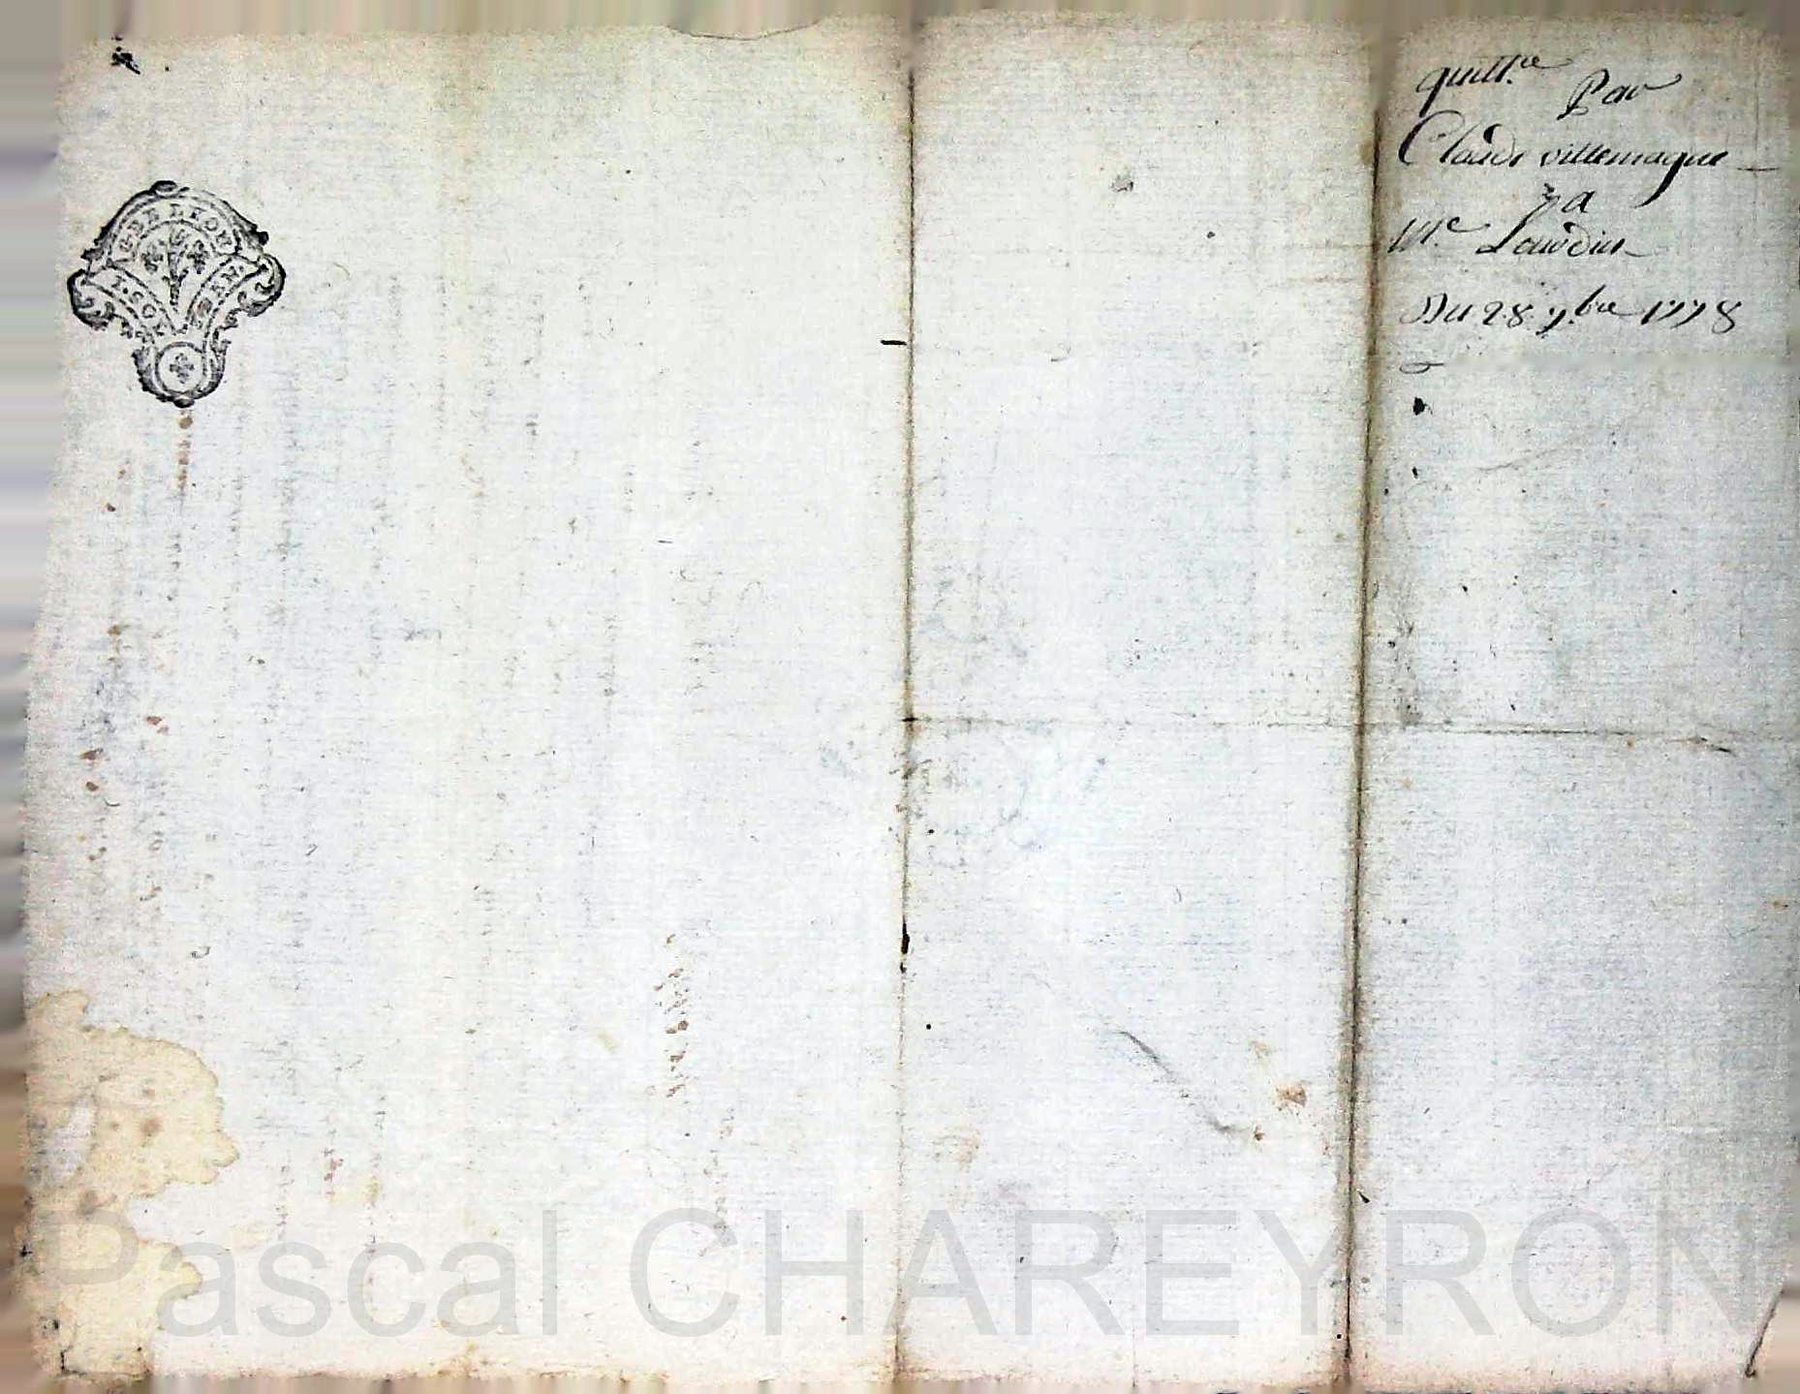 GEN LYON
1. SOL
quitt.ce
Par
Claude villemagne
a
Me Lardin
Du 28 9.bre 1778
Pascal CHAREYRON